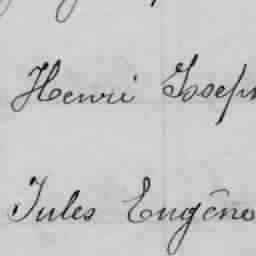 Henri Joseph
Jules Eugène